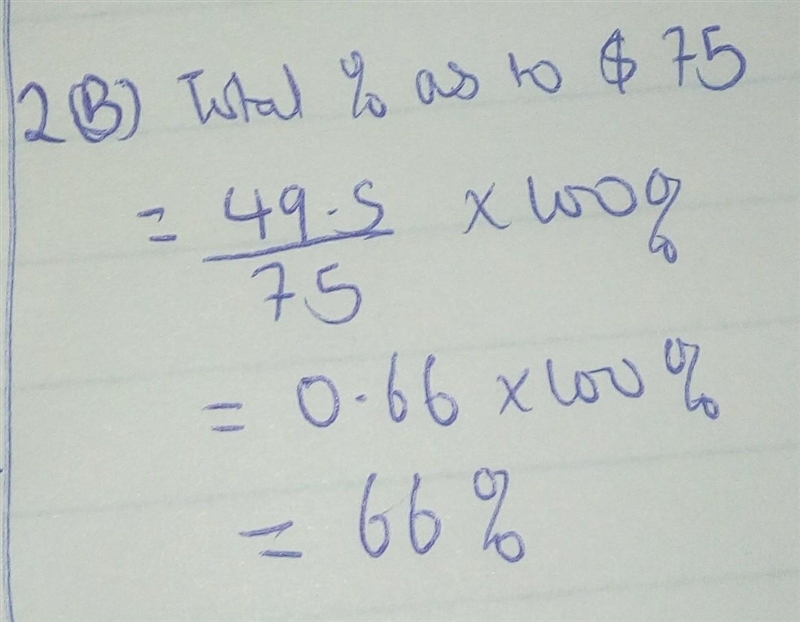 2(B) Total % as to $ 75
= 49.5 / 75 × 100%
= 0.66 × 100%
= 66%